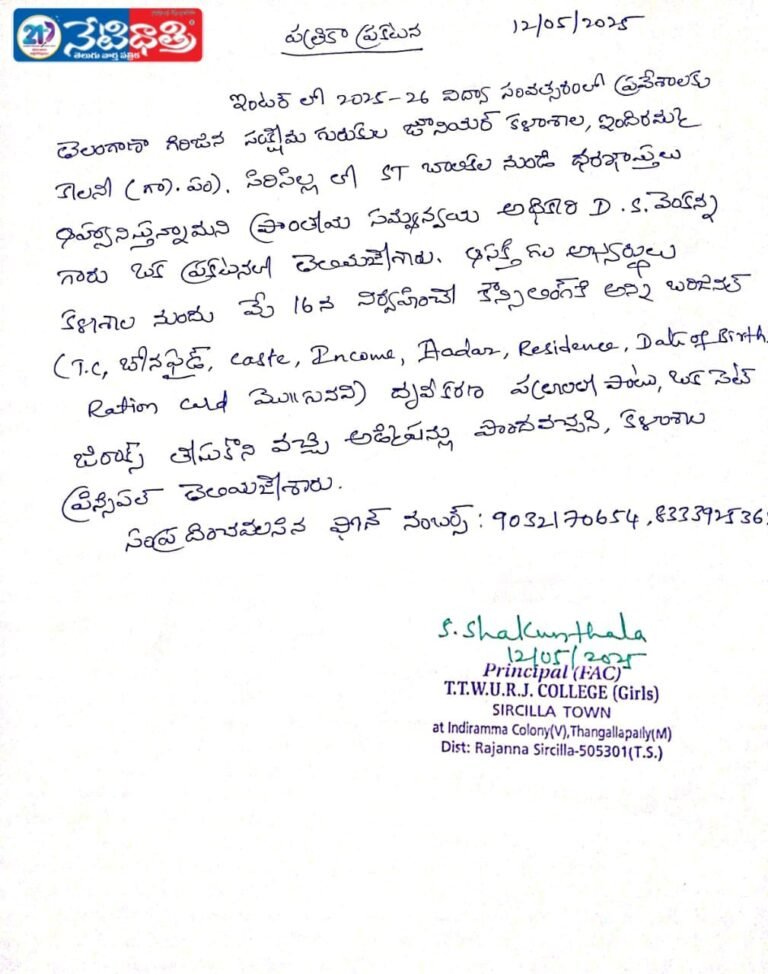 నేటిధాత్రి
తెలుగు వార్త పత్రిక
పత్రికా ప్రకటన 12/05/2025
ఇంటర్ లో 2025-26 విద్యా సంవత్సరంలో ప్రవేశాలకు
తెలంగాణా గిరిజన సంక్షేమ గురుకుల జూనియర్ కళాశాల, ఇందిరమ్మ
కాలనీ (గ్రా). పం). సిరిసిల్ల లో ST బాలికల నుండి ధరఖాస్తులు
ఆహ్వానిస్తున్నామని ప్రాంతీయ సమన్వయ అధికారి D.S. వెంకన్న
గారు ఒక ప్రకటనలో తెలియజేశారు. ఆసక్తి గల అభ్యర్థులు
కళాశాల నందు మే 16 న నిర్వహించే కౌన్సిలింగ్‌కి అన్ని ఒరిజినల్
(T.C, బోనఫైడ్, caste, Income, Aadar, Residence, Date of Birth,
Ration card మొ౹౹నవి) ధృవీకరణ పత్రాలతో పాటు, ఒక సెట్
జిరాక్స్ తీసుకొని వచ్చి అడ్మిషన్లు పొందవచ్చని, కళాశాల
ప్రిన్సిపల్ తెలియజేశారు.
సంప్రదించవలసిన ఫోన్ నంబర్స్ : 9032170654, 833392536
S. Shakunthala
12/05/2025
Principal (FAC)
T.T.W.U.R.J. COLLEGE (Girls)
SIRCILLA TOWN
at Indiramma Colony(V),Thangallapally(M)
Dist: Rajanna Sircilla-505301(T.S.)